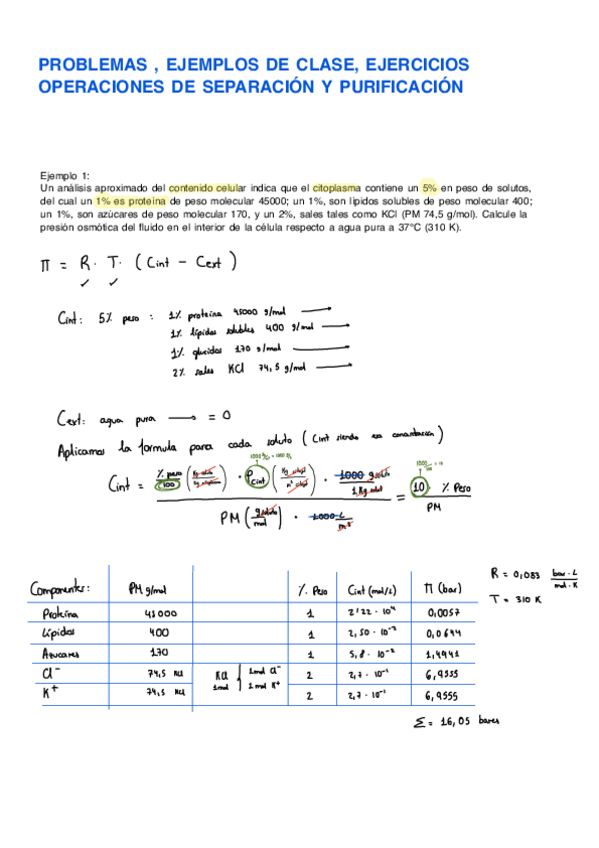 PROBLEMAS , EJEMPLOS DE CLASE, EJERCICIOS
OPERACIONES DE SEPARACIÓN Y PURIFICACIÓN
Ejemplo 1:
Un análisis aproximado del contenido celular indica que el citoplasma contiene un 5% en peso de solutos,
del cual un 1% es proteína de peso molecular 45000; un 1%, son lípidos solubles de peso molecular 400;
un 1%, son azúcares de peso molecular 170, y un 2%, sales tales como KCl (PM 74,5 g/mol). Calcule la
presión osmótica del fluido en el interior de la célula respecto a agua pura a 37°C (310 K).
Π = R · T · ( Cint - Cext )
✓ ✓
Cint: 5% peso : 1% proteína 45000 g/mol →
1% lípidos solubles 400 g/mol →
1% glucidos 170 g/mol →
2% sales KCl 74,5 g/mol →
Cext: agua pura → = 0
Aplicamos la formula para cada soluto ( Cint siendo la concentración)
Cint = % peso / 100 · ρcint · 1000 g soluto / 1 Kg solut = 10 % Peso
PM ( g soluto / mol ) · 1000 L / m³ PM
R = 0,083 bar · L / mol · K
T = 310 K
Componentes: PM g/mol % Peso Cint (mol/L) Π (bar)
Proteína 45000 1 2'22 · 10⁴ 0,0057
Lípidos 400 1 2,50 · 10⁻² 0,6444
Azucares 170 1 5,8 · 10⁻² 1,4941
Cl⁻ 74,5 KCl KCl 1mol 1mol Cl⁻ 2 2,7 · 10⁻¹ 6,9555
K⁺ 74,5 KCl 1mol K⁺ 2 2,7 · 10⁻¹ 6,9555
Σ = 16,05 bares